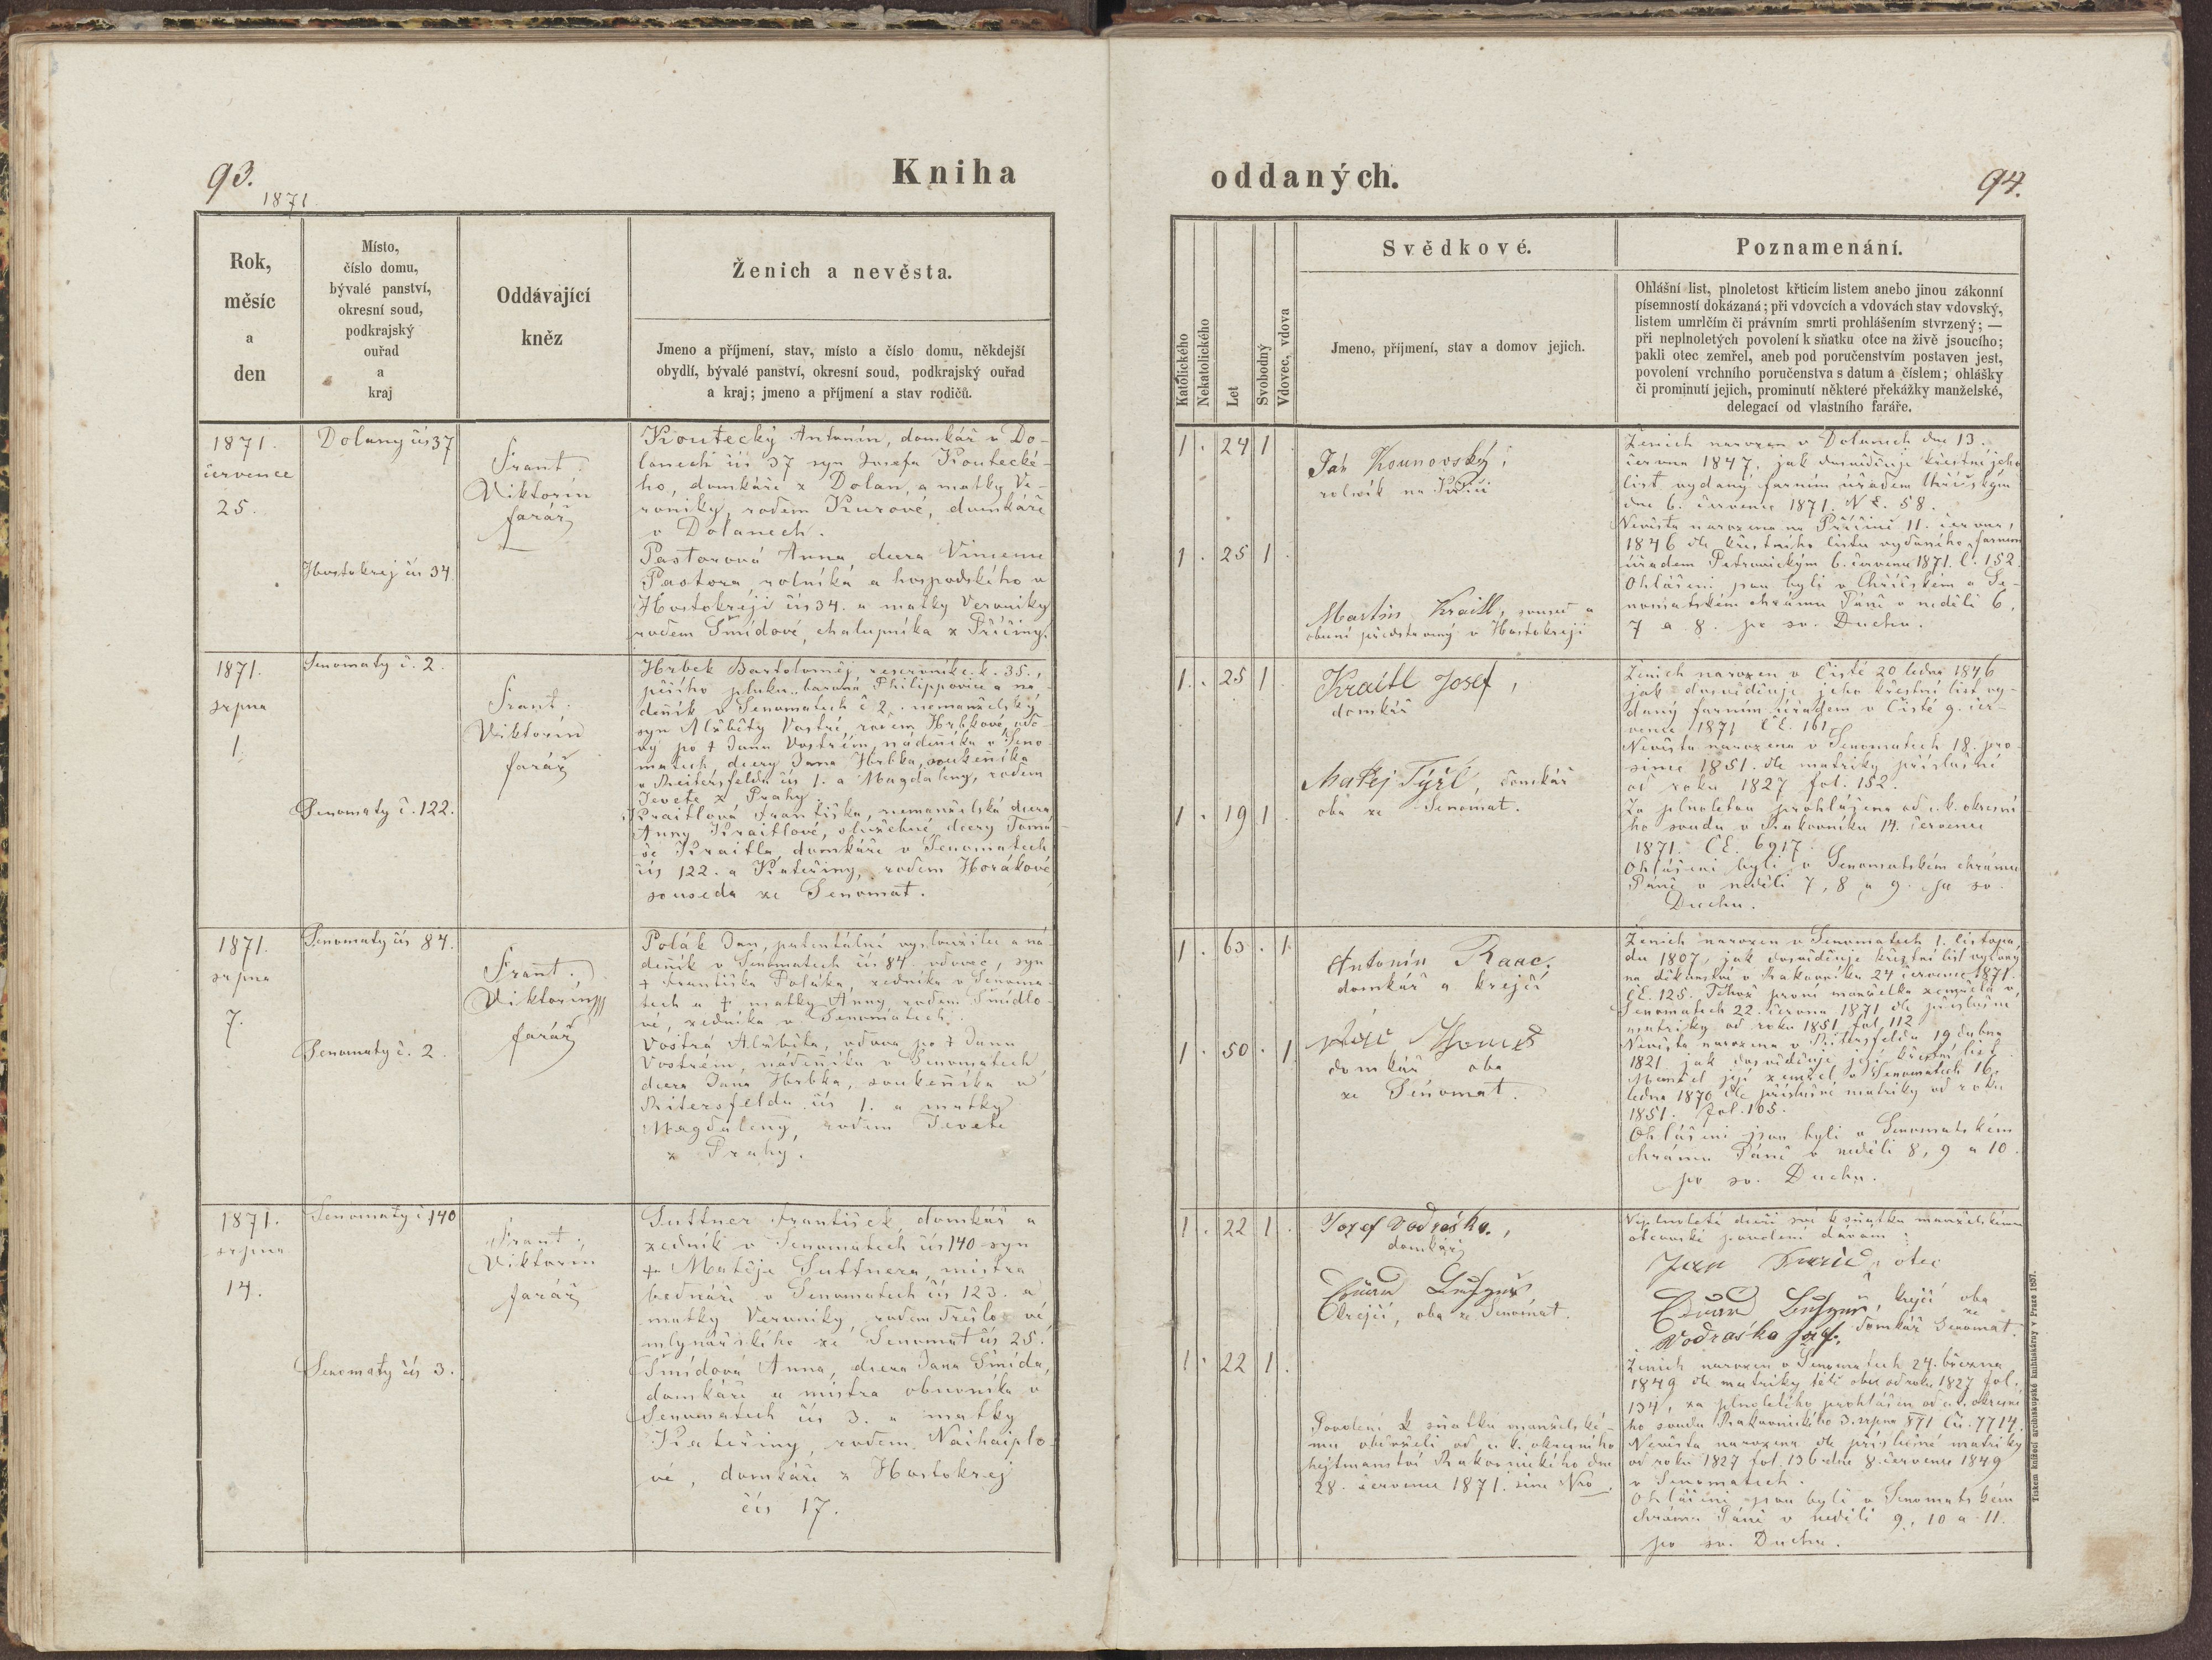 93.
1871
Kniha
Rok,
měsíc
a
den
Místo,
číslo domu,
bývalé panství,
okresní soud,
podkrajský
ouřad
a
kraj
Oddávající
kněz
Ženich a nevěsta.
Jmeno a příjmení, stav, místo a číslo domu, někdejší
obydlí, bývalé panství, okresní soud, podkrajský ouřad
a kraj; jmeno a příjmení a stav rodičů.
1871.
července
25.
Dolany čís 37
Hostokrej čís 34
Frant.
Viktorin
farář
Koutecký Antonín, domkář v Do-
lanech čís 37 syn Josefa Koutecké-
ho, domkáře z Dolan, a matky Ve-
roniky, rodem Kurové, domkáře
v Dolanech.
Pastorová Anna, dcera Vincence
Pastora, rolníka a hospodského v
Hostokreji čís 34. a matky Veroniky
rodem Šmídové, chalupníka z Příčiny.
1871.
srpna
1.
Senomaty č. 2.
Senomaty č. 122.
Frant.
Viktorin
farář
Hrbek Bartoloměj, reservník c. k. 35.,
pěšího pluku barona Philippovice a ná-
deník v Senomatech č 2. nemanželský
syn Alžběty Vostré, rodem Hrbkové, vdo-
vy po † Janu Vostrém, nádeníku v Seno-
matech, dcery Jana Hrbka, soukeníka
v Reitersfeldu čís 1. a Magdaleny, rodem
Tevete z Prahy.
Kraitlová Františka, nemanželská dcera
Anny Kraitlové, služebné, dcery Tomá-
še Kraitla, domkáře v Senomatech
čís 122. a Kateřiny, rodem Horákové,
souseda ze Senomat.
1871.
srpna
7.
Senomaty čís 84.
Senomaty č. 2
Frant.
Viktorin
farář
Polák Jan, patentální vysloužilec a ná-
deník v Senomatech čís 84 vdovec, syn
† Františka Poláka, zedníka v Senoma-
tech a † matky Anny, rodem Šmídlo-
vé, zedníka v Senomatech.
Vostrá Alžběta, vdova po † Janu
Vostrém, nádeníku v Senomatech
dcera Jana Hrbka, soukeníka v
Reitersfeldu čís 1. a matky
Magdaleny, rodem Tevete
z Prahy.
1871.
srpna
14.
Senomaty č 140
Senomaty čís 3.
Frant.
Viktorin
farář
Suttner František, domkář a
zedník v Senomatech čís 140 syn
† Matěje Suttnera, mistra
bednáře v Senomatech čís 123. a
matky Veroniky, rodem Trešlo vé
mlynářského ze Senomat čís 25.
Šmídová Anna, dcera Jana Šmída,
domkáře a mistra obuvníka v
Senomatech čís 3. a matky
Kateřiny, rodem Naihaiplo-
vé, domkáře z Hostokrej
čís 17.
oddaných.
94.
Katolického
Nekatolického
Let
Svobodný
Vdovec, vdova
Svědkové.
Jmeno, příjmení, stav a domov jejich.
Poznamenání.
Ohlášní list, plnoletost křticím listem anebo jinou zákonní
písemností dokázaná; při vdovcích a vdovách stav vdovský,
listem umrlčím či právním smrti prohlášením stvrzený; —
při neplnoletých povolení k sňatku otce na živě jsoucího;
pakli otec zemřel, aneb pod poručenstvím postaven jest,
povolení vrchního poručenstva s datum a číslem; ohlášky
či prominutí jejich, prominutí některé překážky manželské,
delegací od vlastního faráře.
1 . 24 1 .
1 . 25 1 .
Jan Kounovský,
rolník
Martin Kraitl, soused a
obecní představený v Hostokreji
Ženich narozen v Dolanech dne 13.
června 1847, jak dosvědčuje křestní jeho
list vydaný farním úřadem
dne 6. července 1871. N E. 58.
Nevěsta narozena na Příčině 11. června,
1846 dle křestního listu vydaného farním
úřadem Petrovickým 6. července 1871. č. 152.
Ohlášeni jsou byli v a Se-
nomatském chrámu Páně v neděli 6,
7 a 8. po sv. Duchu.
1 . 25 1 .
1 . 19 1 .
Kraitl Josef,
domkář
Matěj Týřl, domkář
oba ze Senomat.
Ženich narozen v Čisté 20 ledna 1846
jak dosvědčuje jeho křestní list vy-
daný farním úřadem v Čisté 9. čer-
vence 1871 ČE. 161
Nevěsta narozena v Senomatech 18. pro-
since 1851. dle matriky příslušné
od roku 1827 fol. 152.
Za plnoletou prohlášena od c. k. okresní-
ho soudu v Rakovníku 14. července
1871. ČE. 6917.
Ohlášeni byli v Senomatském chrámu
Páně v neděli 7, 8 a 9. po sv.
Duchu.
1 . 63 . 1
1 . 50 . 1
Antonín Raac.
domkář a krejčí
domkář oba
ze Senomat.
Ženich narozen v Senomatech 1. listopa-
du 1807, jak dosvědčuje křestní list vydaný
na děkanství v Rakovníku 24 července 1871.
ČE. 125. Téhož první manželka zemřela v
Senomatech 22. června 1871 dle příslušné
matriky od roku 1851 fol 112
Nevěsta narozena v Reitersfeldu 19 dubna
1821 jak dosvědčuje její křestní list
Manžel její zemřel v Senomatech 16.
ledna 1870 dle příslušné matriky od roku
1851. fol. 105.
Ohlášeni jsou byli v Senomatském
chrámu Páně v neděli 8, 9 a 10.
po sv. Duchu.
1 . 22 1 .
1 . 22 1 .
Josef Vodraška,
domkář
krejčí, oba ze Senomat.
Povolení k sňatku manželské-
mu obdrželi od c. k. okresního
hejtmanství Rakovnického dne
28. července 1871. sine Nro.
Neplnoleté dceři své k sňatku manželskému
otcovské povolení dávám:
Jan otec
krejčí oba
Vodraska Josef, domkář ze Senomat.
Ženich narozen v Senomatech 24. března
1849 dle matriky téže obce od roku 1827 fol.
134, za plnoletého prohlášen od c. k. okresní-
ho soudu Rakovnického 3. srpna 871 čís. 7714.
Nevěsta narozena dle příslušné matriky
od roku 1827 fol. 136 dne 8. července 1849
v Senomatech.
Ohlášeni jsou byli v Senomatském
chrámu Páně v neděli 9, 10 a 11.
po sv. Duchu.
Tiskem knížecí arcibiskupské knihtiskárny v Praze 1857.